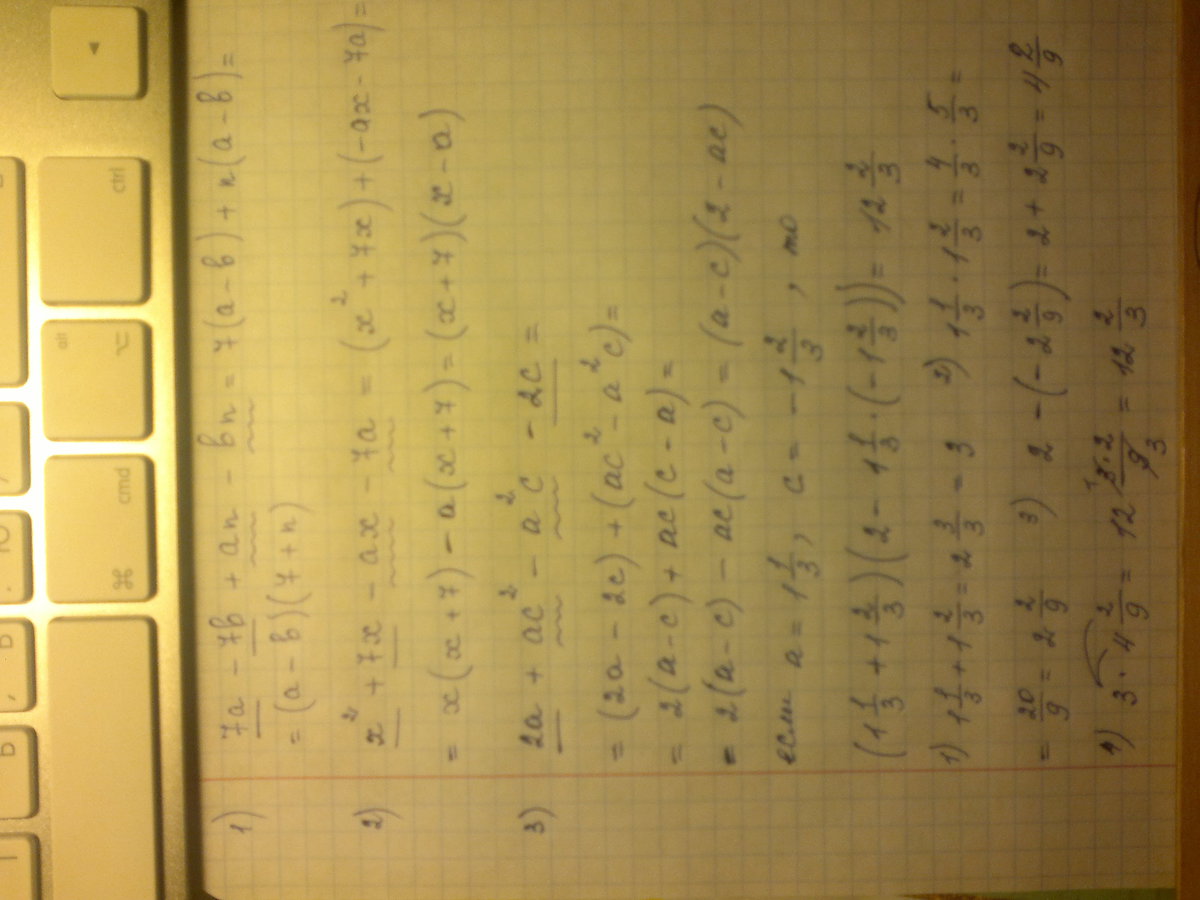 1) 7a - 7b + an - bn = 7(a-b) + n(a-b) =
= (a-b)(7+n)
2) x² + 7x - ax - 7a = (x² + 7x) + (-ax - 7a) =
= x(x+7) - a(x+7) = (x+7)(x-a)
3) 2a + ac² - a²c - 2c =
= (2a - 2c) + (ac² - a²c) =
= 2(a-c) + ac(c-a) =
= 2(a-c) - ac(a-c) = (a-c)(2-ac)
если a = 1 1/3, c = -1 2/3, то
(1 1/3 + 1 2/3)(2 - 1 1/3 · (-1 2/3)) = 12 2/3
1) 1 1/3 + 1 2/3 = 2 3/3 = 3 2) 1 1/3 · 1 2/3 = 4/3 · 5/3 =
= 20/9 = 2 2/9 3) 2 - (-2 2/9) = 2 + 2 2/9 = 4 2/9
4) 3 · 4 2/9 = 12 3·2/9 = 12 2/3
alt
ctrl
cmd
⌥
⌘